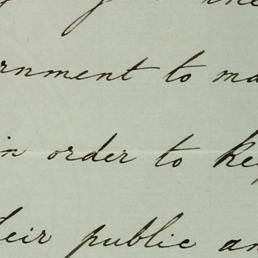 the
rnment to ma
in order to kee
their public an